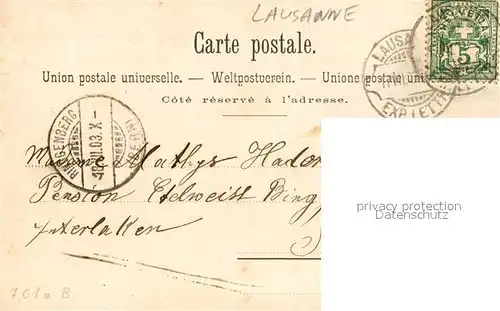 LAUSANNE
Carte postale.
Union postale universelle. — Weltpostverein. — Unione postale uni
Côté réservé à l'adresse.
LAUSA
EXP. LETT
5
RINGGENBERG
-18.VII.03.X-
Madame Mathys Hador
Pension Edelweiss Ring
Interlaken
privacy protection
Datenschutz
7,01 a B